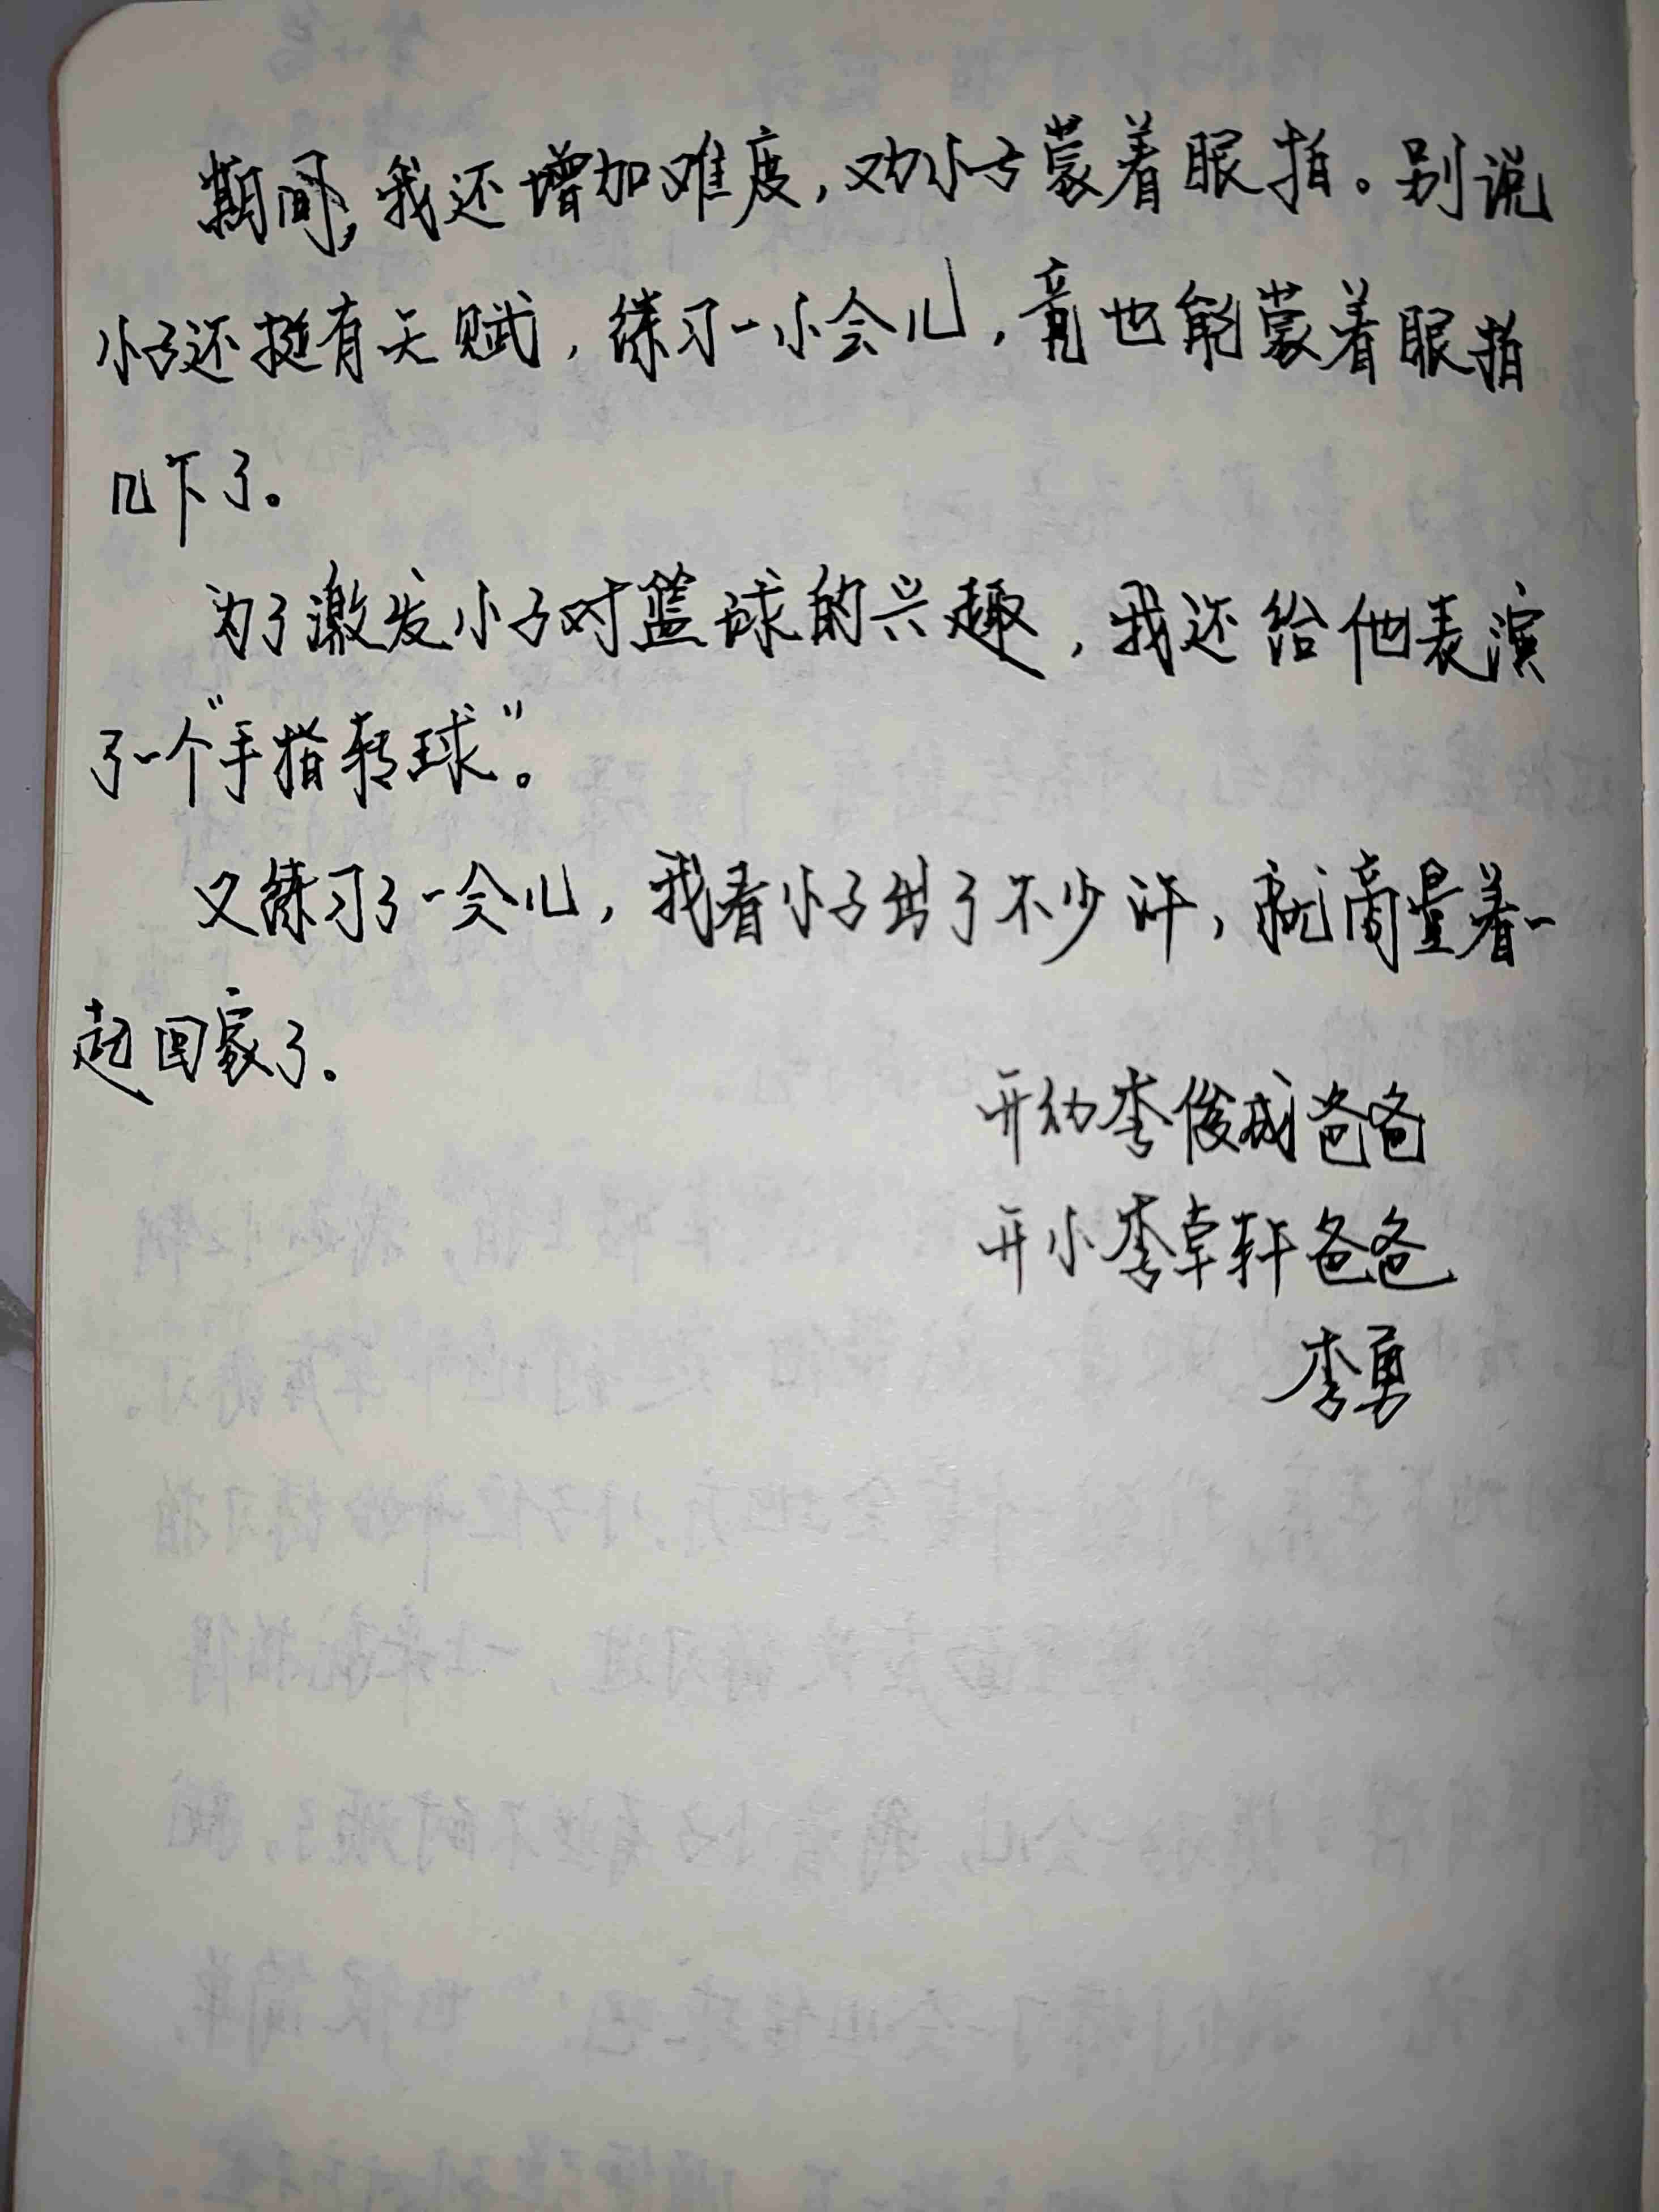 期间，我还增加难度，劝小子蒙着眼拍。别说
小子还挺有天赋，练习一小会儿，竟也能蒙着眼拍
几下了。
为了激发小子对篮球的兴趣，我还给他表演
了一个“手指转球”。
又练习了一会儿，我看小子出了不少汗，就商量着一
起回家了.
开幼李俊成爸爸
开小李卓轩爸爸
李勇